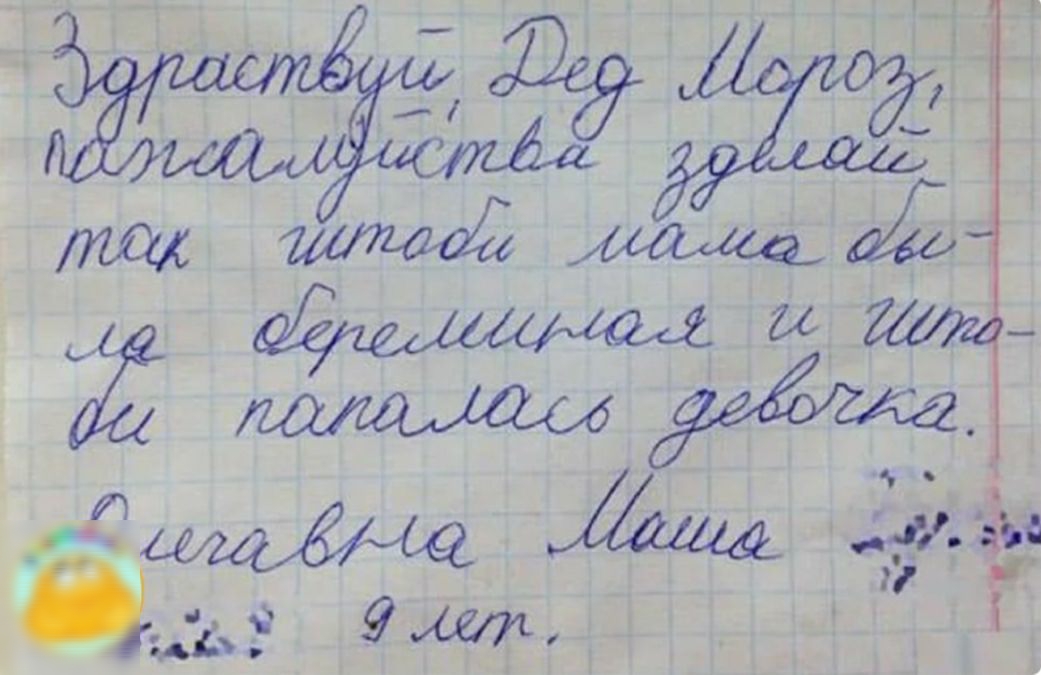 Здраствуй, Дед Мороз,
пажалуйства зделай
так штоби мама бы-
ла береминая и што-
би папалась девочка.
Маша
9 лет.